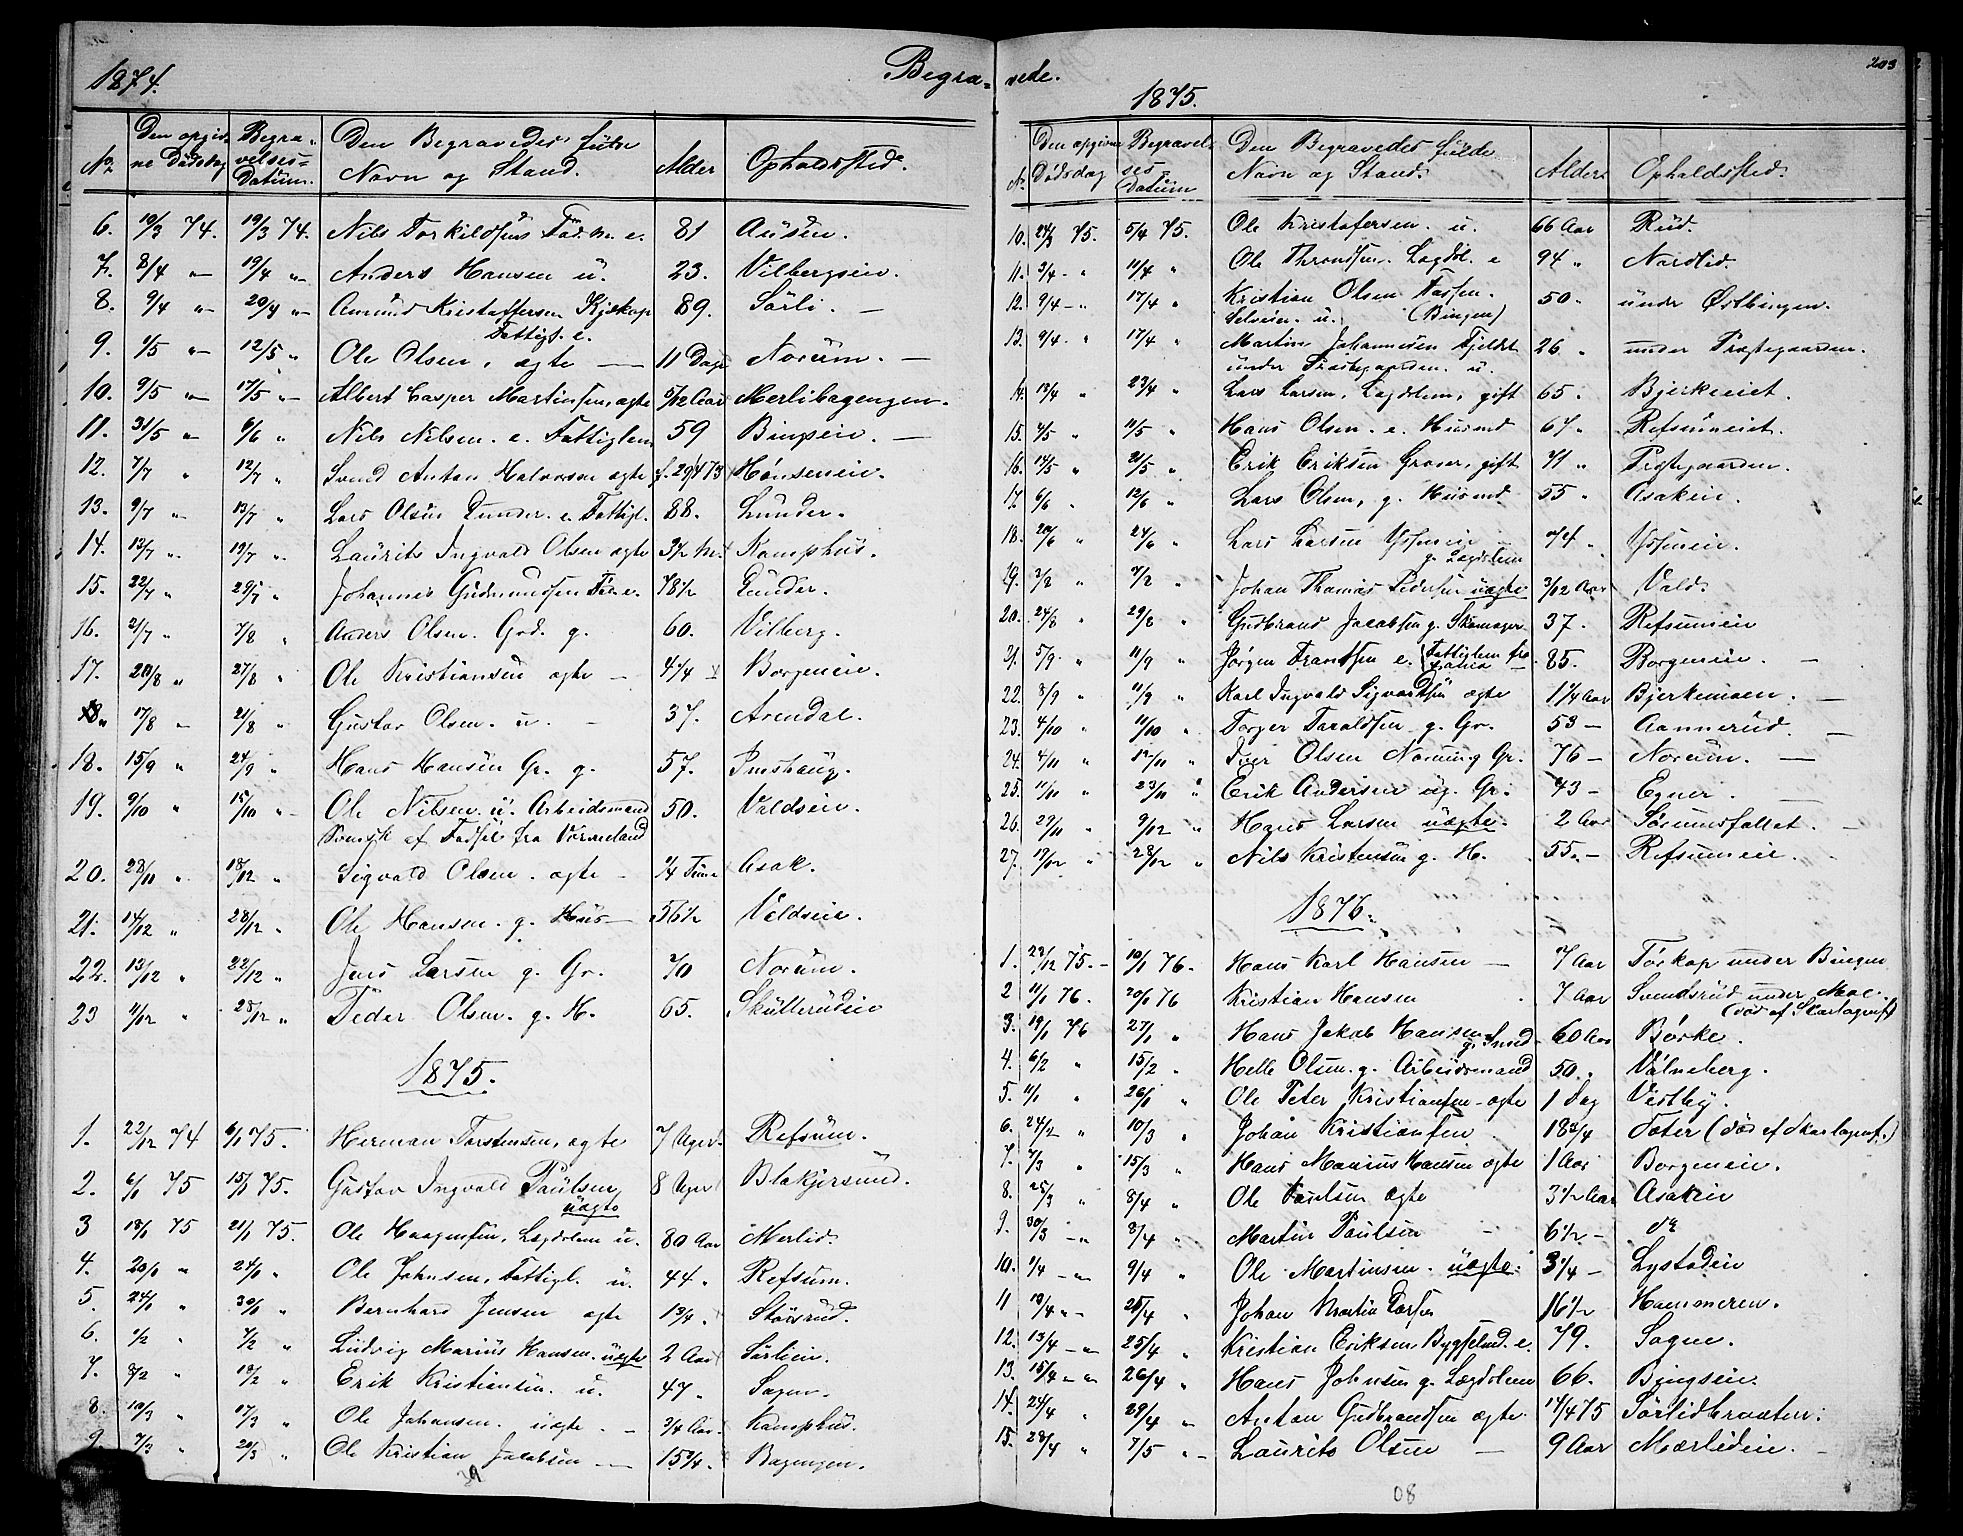 1874.
Begra-
No
Den opgiv-
ne Dødsdag
Begra-
velses-
Datum.
Den Begravedes fulde
Navn og Stand.
Alder
Opholdssted.
6. 10/3 74. 19/3 74. Nils Torkildsens Fød. M. e. 81 Ausen.
7. 8/4 " 19/4 " Anders Hansen u. 23. Vilbergseie.
8. 9/4 " 20/4 " Amund Kristoffersen Kjøkop 89. Sørli.
Fattigl. e.
9. 1/5 " 12/5 " Ole Olsen, ægte 11 Dage Norum.
10. 9/5 " 17/5 " Albert Casper Martinsen, ægte 5/12 Aar Merlibagengen.
11. 31/5 " 6/6 " Nils Nilsen. e. Fattiglem 59 Bingseie.
12. 7/7 " 12/7 " Svend Anton Halvorsen ægte f. 29/4 73 Hønseneie.
13. 9/7 " 13/7 " Lars Olsen Lunder. e. Fattigl. 88. Lunder.
14. 13/7 " 19/7 " Laurits Ingvald Olsen ægte 3 1/2 M. Kamphus.
15. 22/7 " 29/7 " Johannes Gudmundsen e. 78 1/2 Lunder.
16. 2/7 " 7/8 " Anders Olsen. Grd. g. 60. Vilberg.
17. 20/8 " 27/8 " Ole Kristiansen ægte 4 1/4 Borgeneie.
17/8 " 21/8 " Gustav Olsen. u. 37. Arendal.
18. 15/9 " 24/9 " Hans Hansen Gr. g. 57. Imshaug.
19. 9/10 " 15/10 " Ole Nilsen. u. Arbeidsmand 50. Valdseie.
Svensk af Fødsel fra Värmeland
20. 28/11 " 18/12 " Sigvald Olsen. ægte 1/4 Time Asak.
21. 14/12 " 28/12 " Ole Hansen. g. Hus 56 1/2 Valdseie.
22. 13/12 " 22/12 " Jens Larsen g. Gr. 70 Norum.
23 11/12 " 28/12 " Peder Olsen. g. H. 65. Skullerudeie
1875.
1. 22/12 74 6/1 75. Herman Torstensen, ægte 7 Uger Refsum.
2. 6/1 75 15/1 75. Gustav Ingvald Paulsen 8 Uger Blakjersund.
uægte
3 13/1 75 21/1 75. Ole Haagensen, Lægdslem u. 80 Aar Merlid.
4. 20/1 " 24/1 " Ole Johnsen, Fattigl. u. 44 " Refsum.
5. 24/1 " 30/1 " Bernhard Jensen ægte 1 3/4 " Størsrud.
6. 1/2 " 7/2 " Ludvig Marius Hansen. uægte 2 Aar Sørlieie.
7. 8/2 " 13/2 " Erik Kristiansen. u. 47 " Sogne.
8. 10/3 " 17/3 " Ole Johansen. uægte 3/4 Aar Kamphus.
9. 7/3 " 20/3 " Ole Kristian Jacobsen 15 3/4. Bagengen.
39
vede.
1875.
203
No
Den opgivne
Dødsdag
Begravel-
ses-
Datum
Den Begravedes fulde
Navn og Stand.
Alder.
Opholdssted.
10. 24/3 75. 5/4 75. Ole Kristofersen. u. 66 Aar Rud.
11. 3/4 " 11/4 " Ole Throndsen. Lægdsl. e 94 " Nordlid.
12. 9/4 " 17/4 " Kristian Olsen Fossen. 50 " under Østbingen.
Selveier. u. (Bingen)
13. 9/4 " 17/4 " Martin Johannesen Fjeldet 26 " under Præstegaarden.
under Præstegaarden. u.
14. 13/4 " 23/4 " Lars Larsen, Lægdslem, gift 65. Bjerkeeiet.
15. 4/5 " 11/5 " Hans Olsen. e. Husmd 67 " Refsumeiet.
16. 14/5 " 21/5 " Erik Eriksen Graver, gift 71 " Prestegaarden.
17. 6/6 " 12/6 " Lars Olsen, g. Husmd 55 " Asakeie.
18. 20/6 " 24/6 " Lars Larsen 74 "
g. Lægdslem
19. 3/2 " 7/2 " Johan Thomas Pedersen uægte 3/12 Aar Vald.
20. 24/8 " 29/8 " Gudbrand Jacobsen g. Skomager 37. Refsumeie
21. 5/9 " 11/9 " Jørgen Frantsen e. Fattiglem fra 85. Borgeneie.
22. 8/9 " 11/9 " Karl Ingvald Sigvardsen ægte 1 1/4 Aar Bjerkemoen.
23. 4/10 " 11/10 " Torger Taraldsen g. Gr. 53 Aannerud.
24. 4/11 " 12/11 " Iver Olsen Norum g Gr. 76 Norum.
25. 11/11 " 23/11 " Erik Andersen ug. Gr. 43 Egner.
26. 29/11 " 9/12 " Hans Larsen uægte. 2 Aar Sørumsfallet.
27. 19/12 " 28/12 " Nils Kristensen g. H. 55. Refsumeie.
1876.
1. 22/12 75. 10/1 76. Hans Karl Hansen 7 Aar Torkop under Bingen
2 11/1 76. 20/1 76 Kristian Hansen 7 Aar Svendsrud under Moe.
(død af Skarlagensf)
3. 19/1 76 27/1 " Hans Jakob Hansen 60 Aar Børke.
g. Smed
4. 6/2 " 15/2 " Helle Olsen. g. Arbeidsmand 50. Valneberg.
5. 11/1 " 26/1 " Ole Peter Kristiansen ægte 1 Dag Vestby.
6. 24/2 " 10/3 " Johan Kristiansen 18 3/4 Toter (død af Skarlagensf.)
7. 7/3 " 15/3 " Hans Marius Hansen ægte 1 Aar Borgeneie.
8. 25/3 " 8/4 " Ole Paulsen ægte 3 1/2 Aar Asakeie
9. 30/3 " 8/4 " Martin Paulsen 6 1/2 do
10. 1/4 " 9/4 " Ole Martinsen. uægte. 3 1/4 Lystadeie
11 13/4 " 25/4 " Johan Martin Larsen 16 1/2 Hammeren.
12. 13/4 " 25/4 " Kristian Eriksen Bygselmd. e. 79. Sogne.
13. 15/4 " 26/4 " Hans Johnsen g. Lægdslem 66. Bingseie.
14. 24/4 " 29/4 " Anton Gudbrandsen ægte 14/4 75 Sørlidbraaten.
15. 28/4 " 7/5 " Laurits Olsen 9 Aar Mærlideie.
08